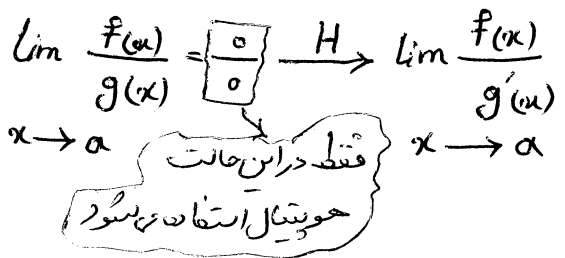 lim f(x)/g(x) = 0/0 —H→ lim f(x)/g'(x)
x → a x → a
فقط در این حالت
هوپیتال استفاده می‌شود